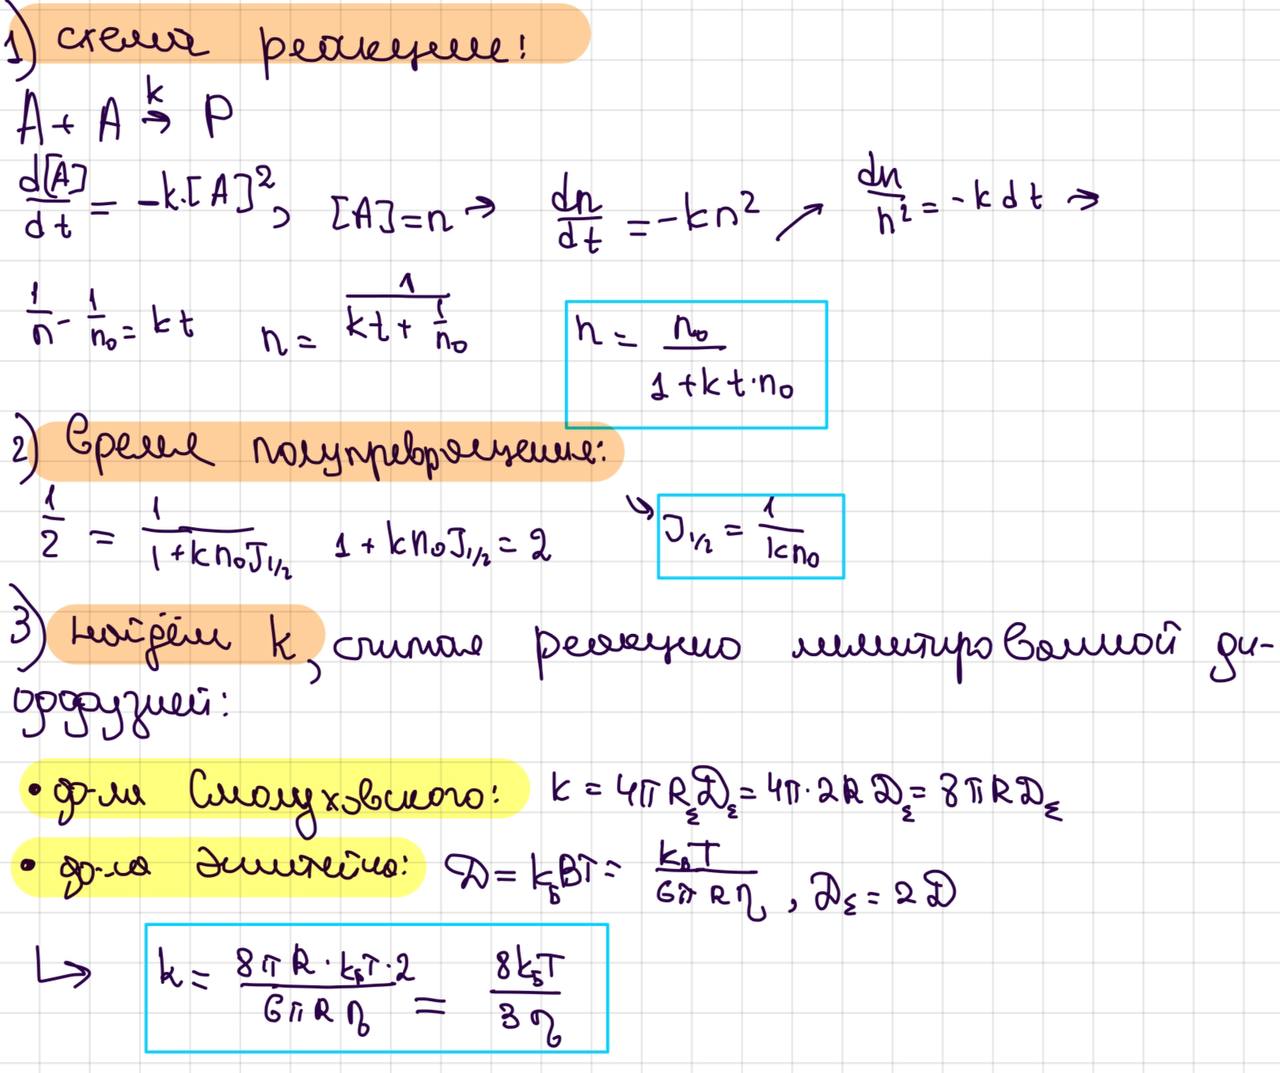 1) схема реакции:
A + A →k P
d[A]/dt = -k·[A]², [A]=n → dn/dt = -kn² ↗ dn/n² = -k dt →
1/n - 1/n₀ = kt n = 1/(kt + 1/n₀) n = n₀/(1+kt·n₀)
2) Время полупревращения:
1/2 = 1/(1+kn₀τ₁/₂) 1+kn₀τ₁/₂ = 2 ↘ τ₁/₂ = 1/(kn₀)
3) Найдём k, считая реакцию лимитированной ди-
ффузией:
• ф-ла Смолуховского: k = 4πR_Σ D_Σ = 4π·2R D_Σ = 8πRD_Σ
• ф-ла Эйнштейна: D = k_Б BT = k_Б T/(6πRη), D_Σ = 2D
↳ k = (8πR·k_Б T·2)/(6πRη) = 8k_Б T/(3η)